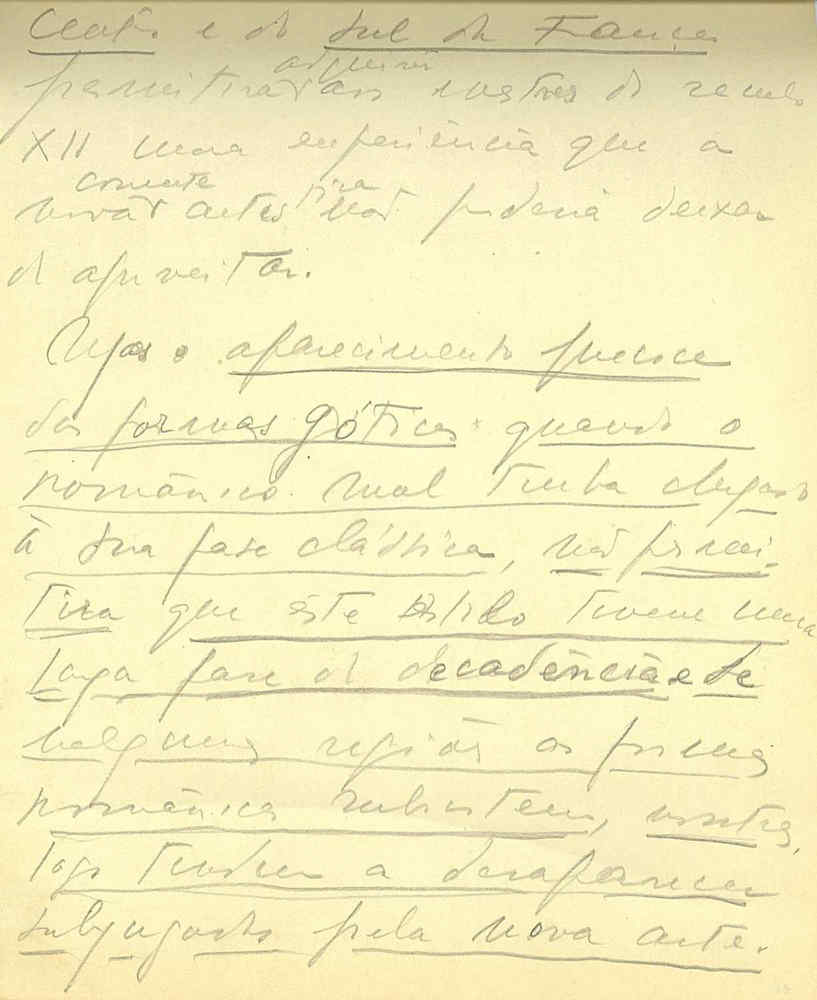 Centro e do Sul da França
adquirir
permitiram aos mestres do seculo
XII uma experiência que a
corrente
artística não poderia deixar
de aproveitar.
Mas o aparecimento precoce
das formas góticas quando o
românico mal tinha chegado
à sua fase clássica, não permi-
tira que êste estilo tivesse uma
loga fase de decadência e se
nalgumas regiões as formas
românicas subsistem, noutras,
logo tendem a desaparecer
subjugados pela nova arte.